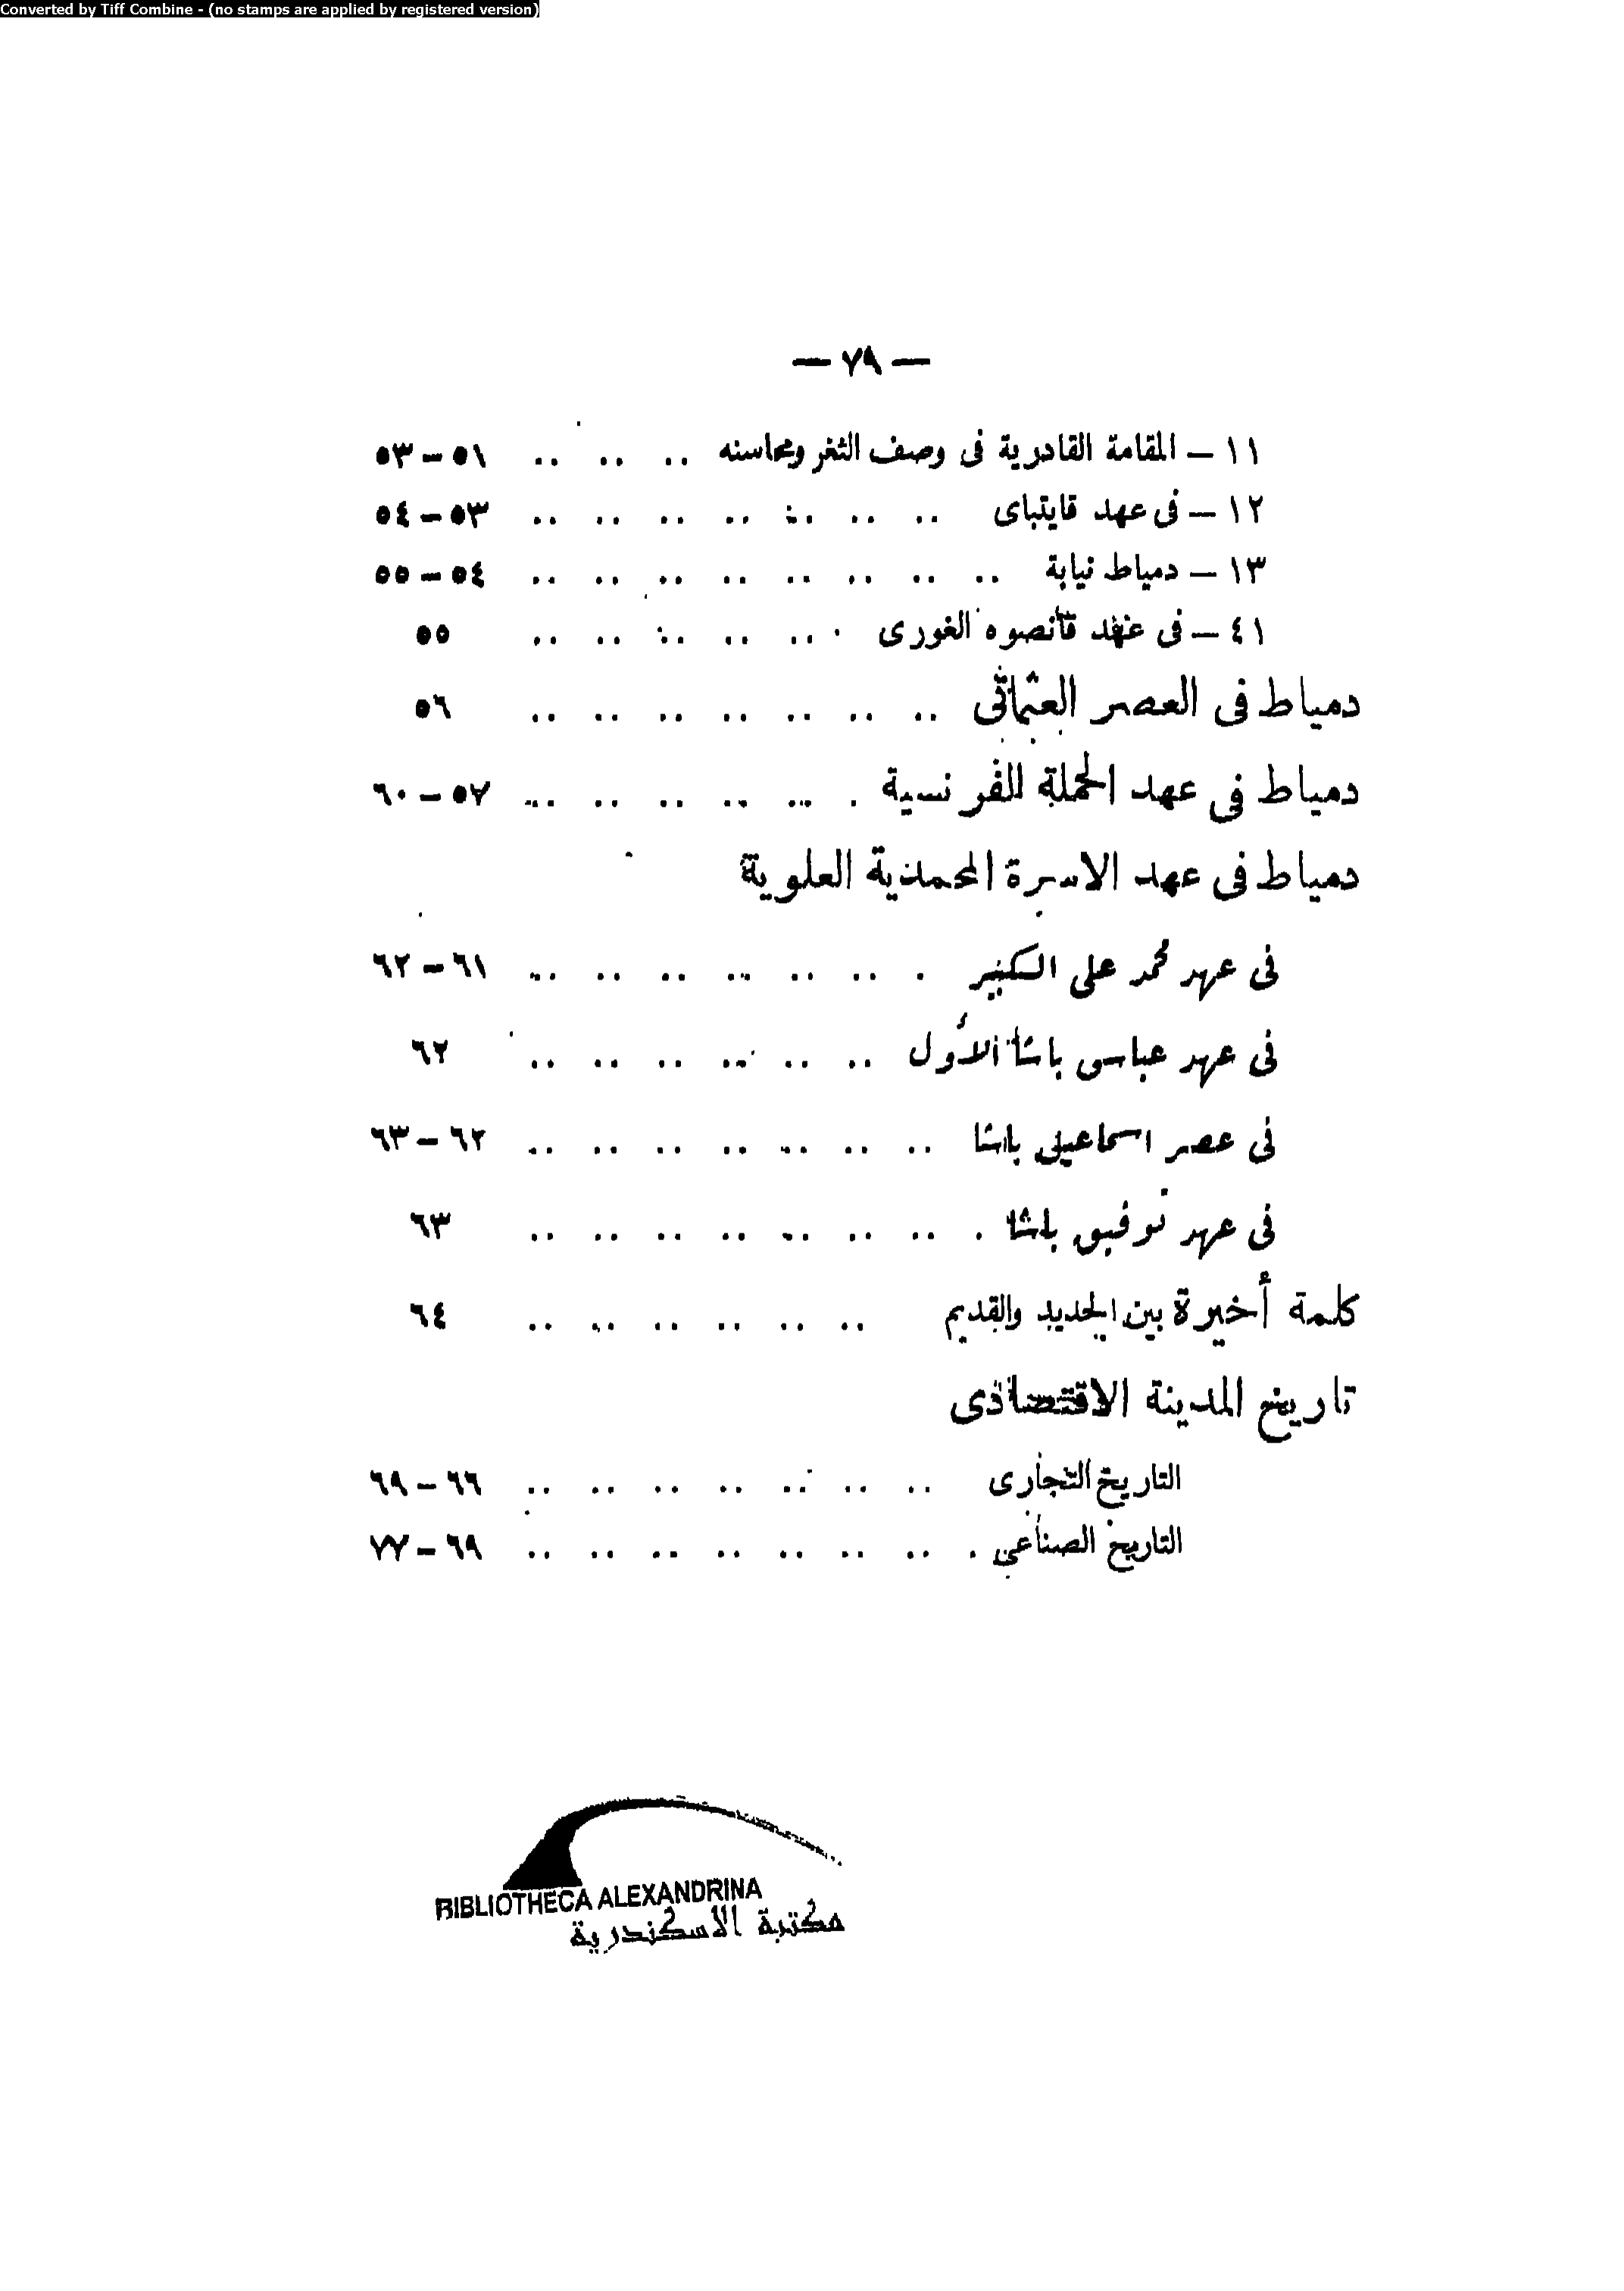 Converted by Tiff Combine - (no stamps are applied by registered version)
— ٧٩ —
١١ — المقامة القادرية فى وصف الثغر ومحاسنه .. .. .. ٥١ — ٥٣
١٢ — فى عهد قايتباى .. .. .. .. .. .. .. ٥٣ — ٥٤
١٣ — دمياط نيابة .. .. .. .. .. .. .. .. ٥٤ — ٥٥
٤١ — فى عهد قانصوه الغورى . .. .. .. .. .. ٥٥
دمياط فى العصر العثمانى .. .. .. .. .. .. .. ٥٦
دمياط فى عهد الحملة الفرنسية . .. .. .. .. .. ٥٧ — ٦٠
دمياط فى عهد الاسرة المحمدية العلوية
فى عهد محمد على الكبير . .. .. .. .. .. .. ٦١ — ٦٢
فى عهد عباس باشا الأول .. .. .. .. .. .. ٦٢
فى عصر اسماعيل باشا .. .. .. .. .. .. .. ٦٢ — ٦٣
فى عهد توفيق باشا . .. .. .. .. .. .. .. ٦٣
كلمة أخيرة بين الجديد والقديم .. .. .. .. .. .. ٦٤
تاريخ المدينة الاقتصادى
التاريخ التجارى .. .. .. .. .. .. .. ٦٦ — ٦٩
التاريخ الصناعى . .. .. .. .. .. .. .. ٦٩ — ٧٧
BIBLIOTHECA ALEXANDRINA
مكتبة الاسكندرية